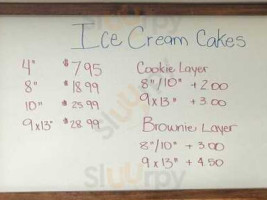 Ice Cream Cakes
4" $7.95
8" $18.99
10" $25.99
9x13" $28.99
Cookie Layer
8"/10" +2.00
9x13" +3.00
Brownie Layer
8"/10" +3.00
9x13" +4.50
Sluurpy
Sluurpy